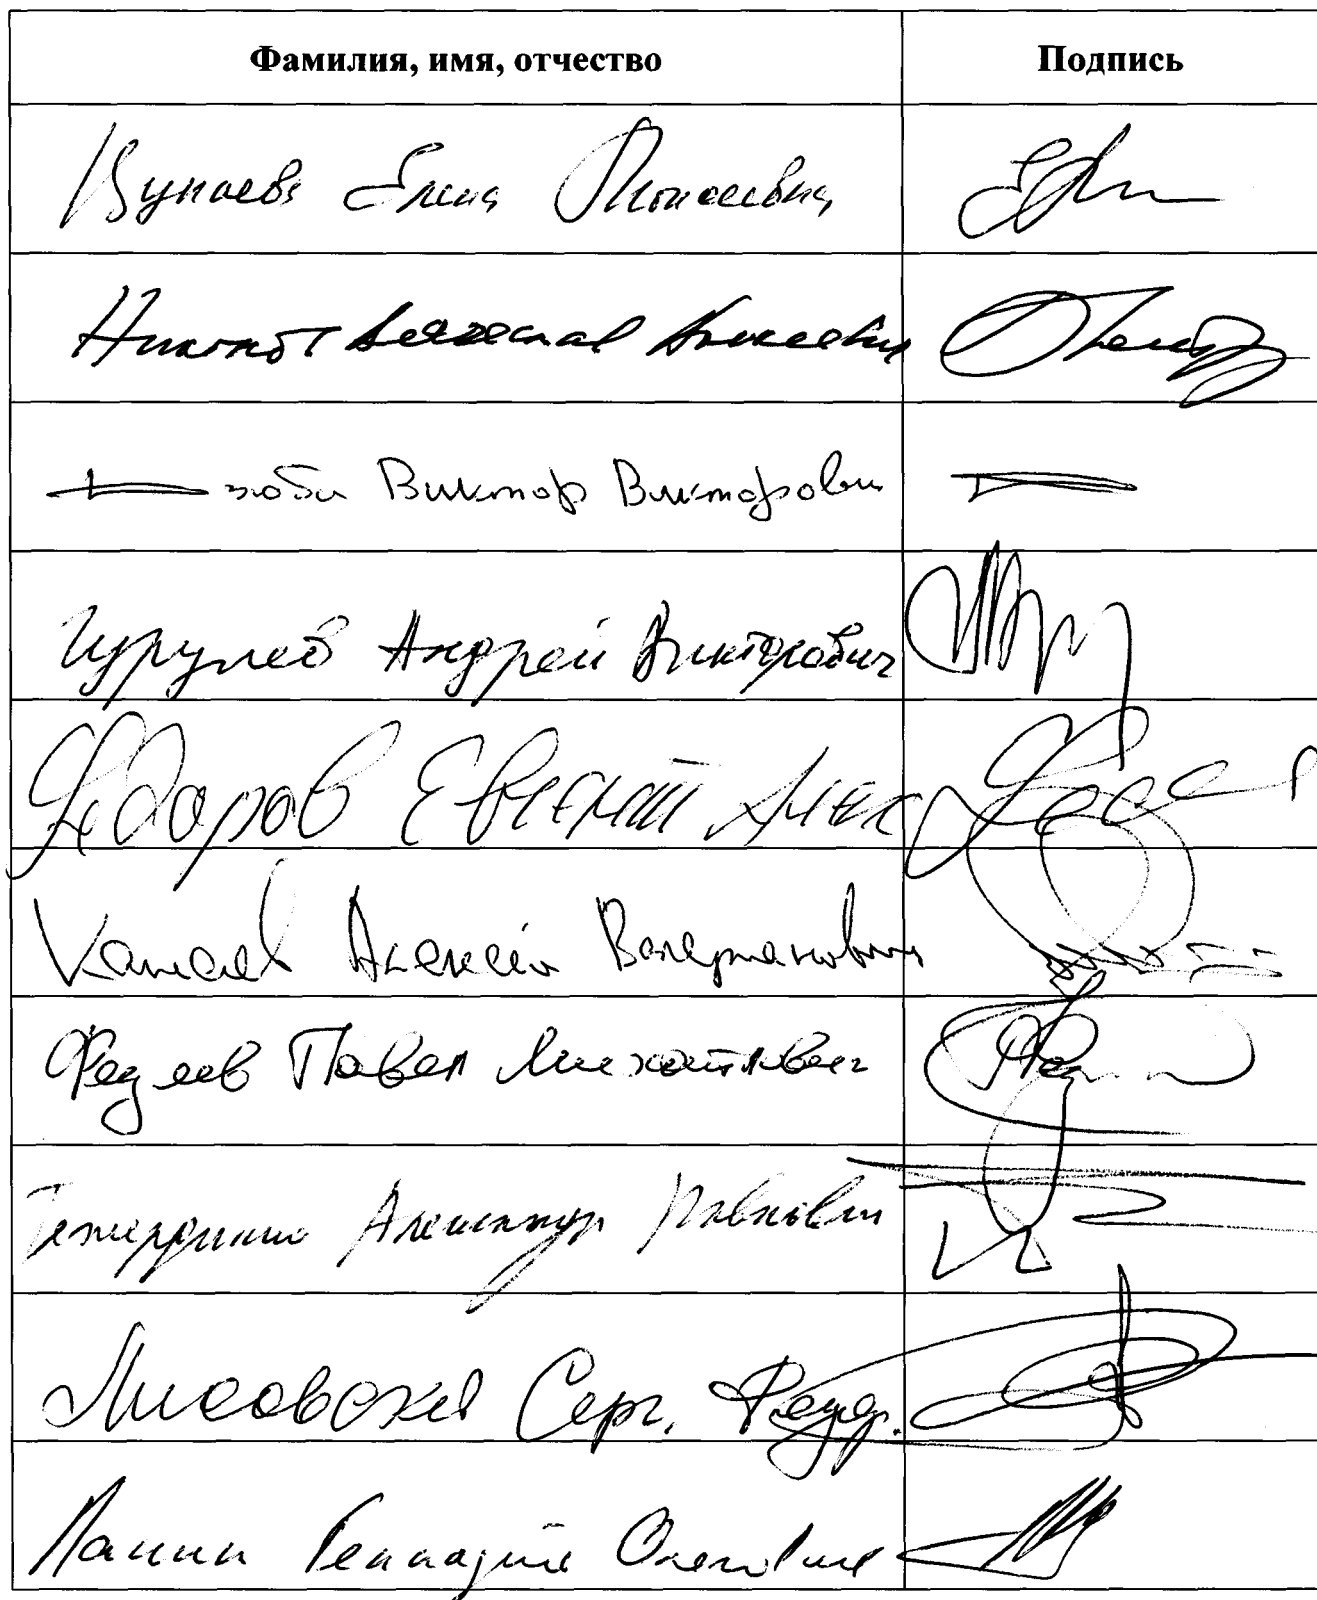 Фамилия, имя, отчество Подпись
Цунаева Елена Моисеевна
Никонов Вячеслав Алексеевич
зюба Виктор Викторович
Гурулев Андрей Викторович
Федоров Евгений Алек
Канаев Алексей Валерианович
Федяев Павел Михайлович
Александр
Лисовский Серг. Федор.
Панин Геннадий Олегович